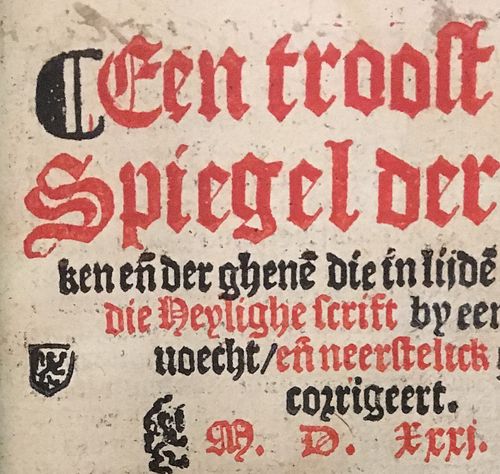 ¶ Een troost
Spiegel der
ken eñ der ghenē die in lijdē
die Heylighe scrift by een
uoecht/eñ neerstelick
corrigeert.
M. D. Xxxj.